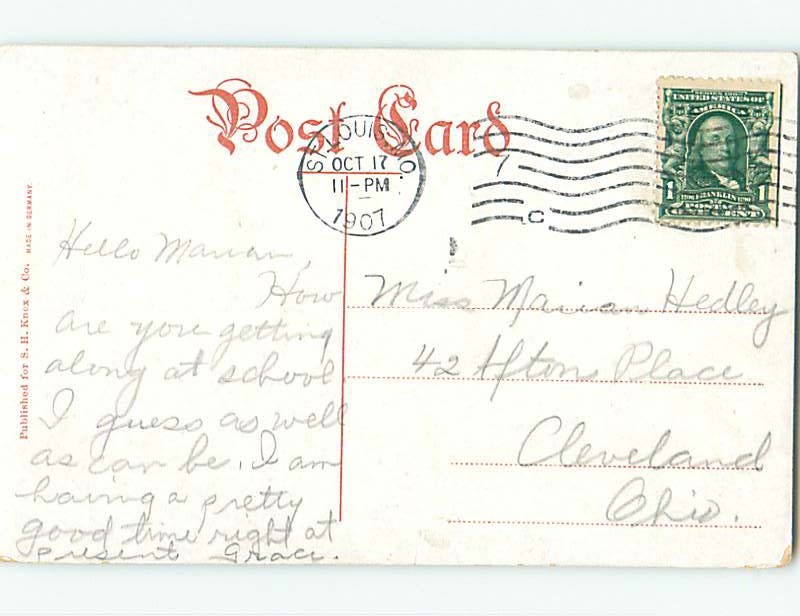 Post Card
ST. LOUIS, MO.
OCT 17
11-PM
1907
C
SERIES 1902
UNITED STATES OF
AMERICA
1 FRANKLIN 1
POSTAGE
ONE CENT
Published for S. H. Knox & Co. MADE IN GERMANY.
Hello Marian,
How
are you getting
along at school
I guess as well
as can be. I am
having a pretty
good time right at
present Grace.
Miss Marian Hedley
42 Aftons Place
Cleveland
Ohio.